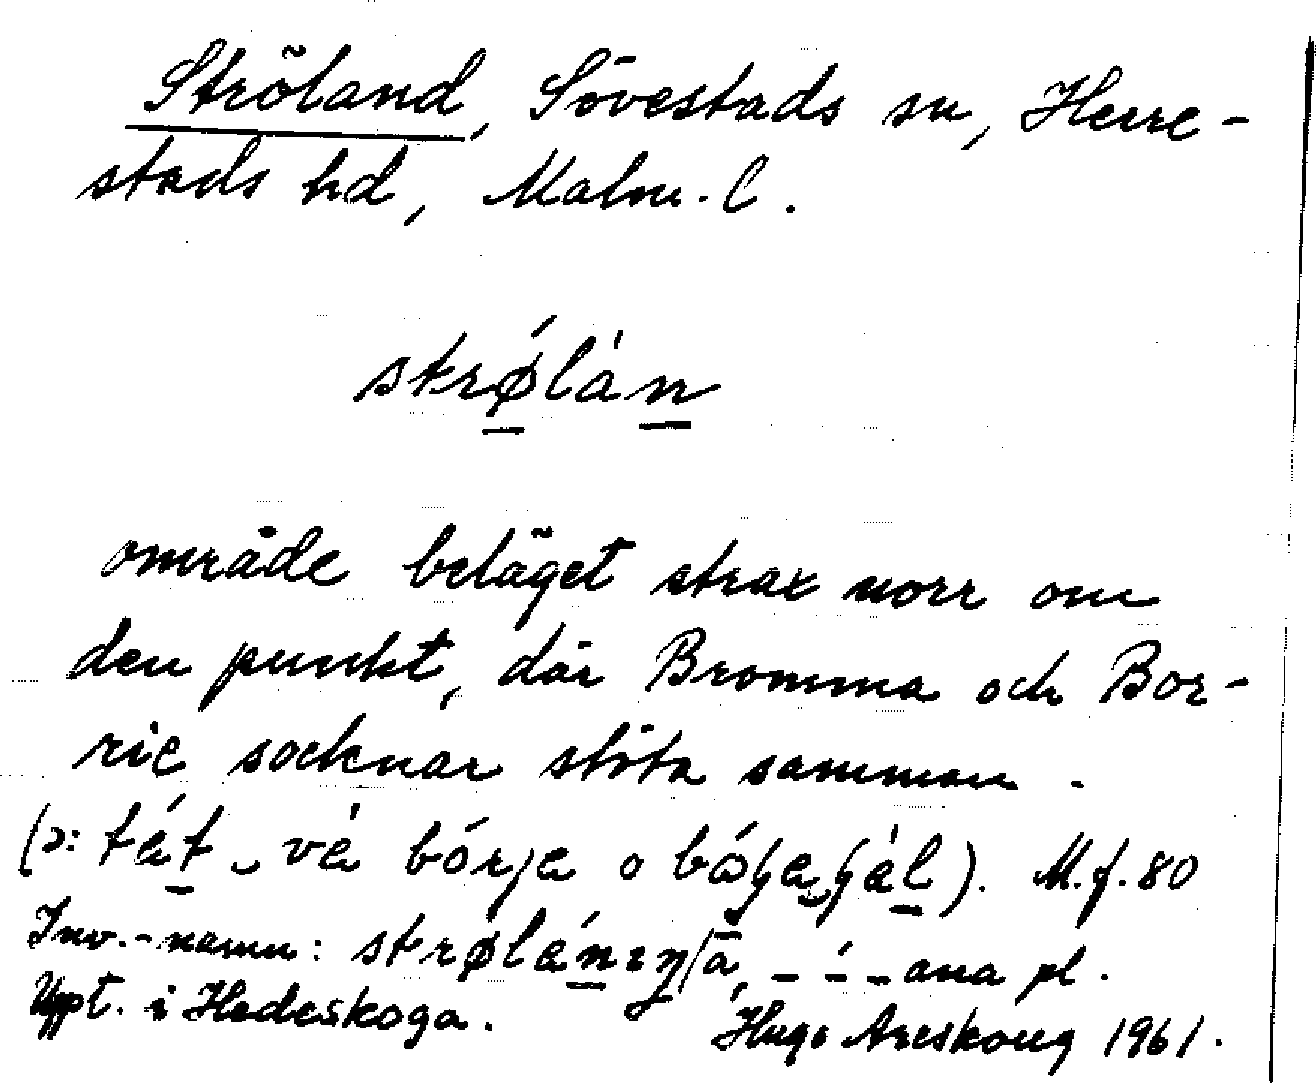 Ströland, Sövestads sn, Herre-
stads hd, Malm. l.
strǿlàn
område beläget strax norr om
den punkt, där Bromma och Bor-
rie socknar stöta samman.
(ɔ: tát vè bórje o
M.f. 80
Inv.-namn: ana pl.
Uppt. i Hedeskoga. Hugo Areskoug 1961.